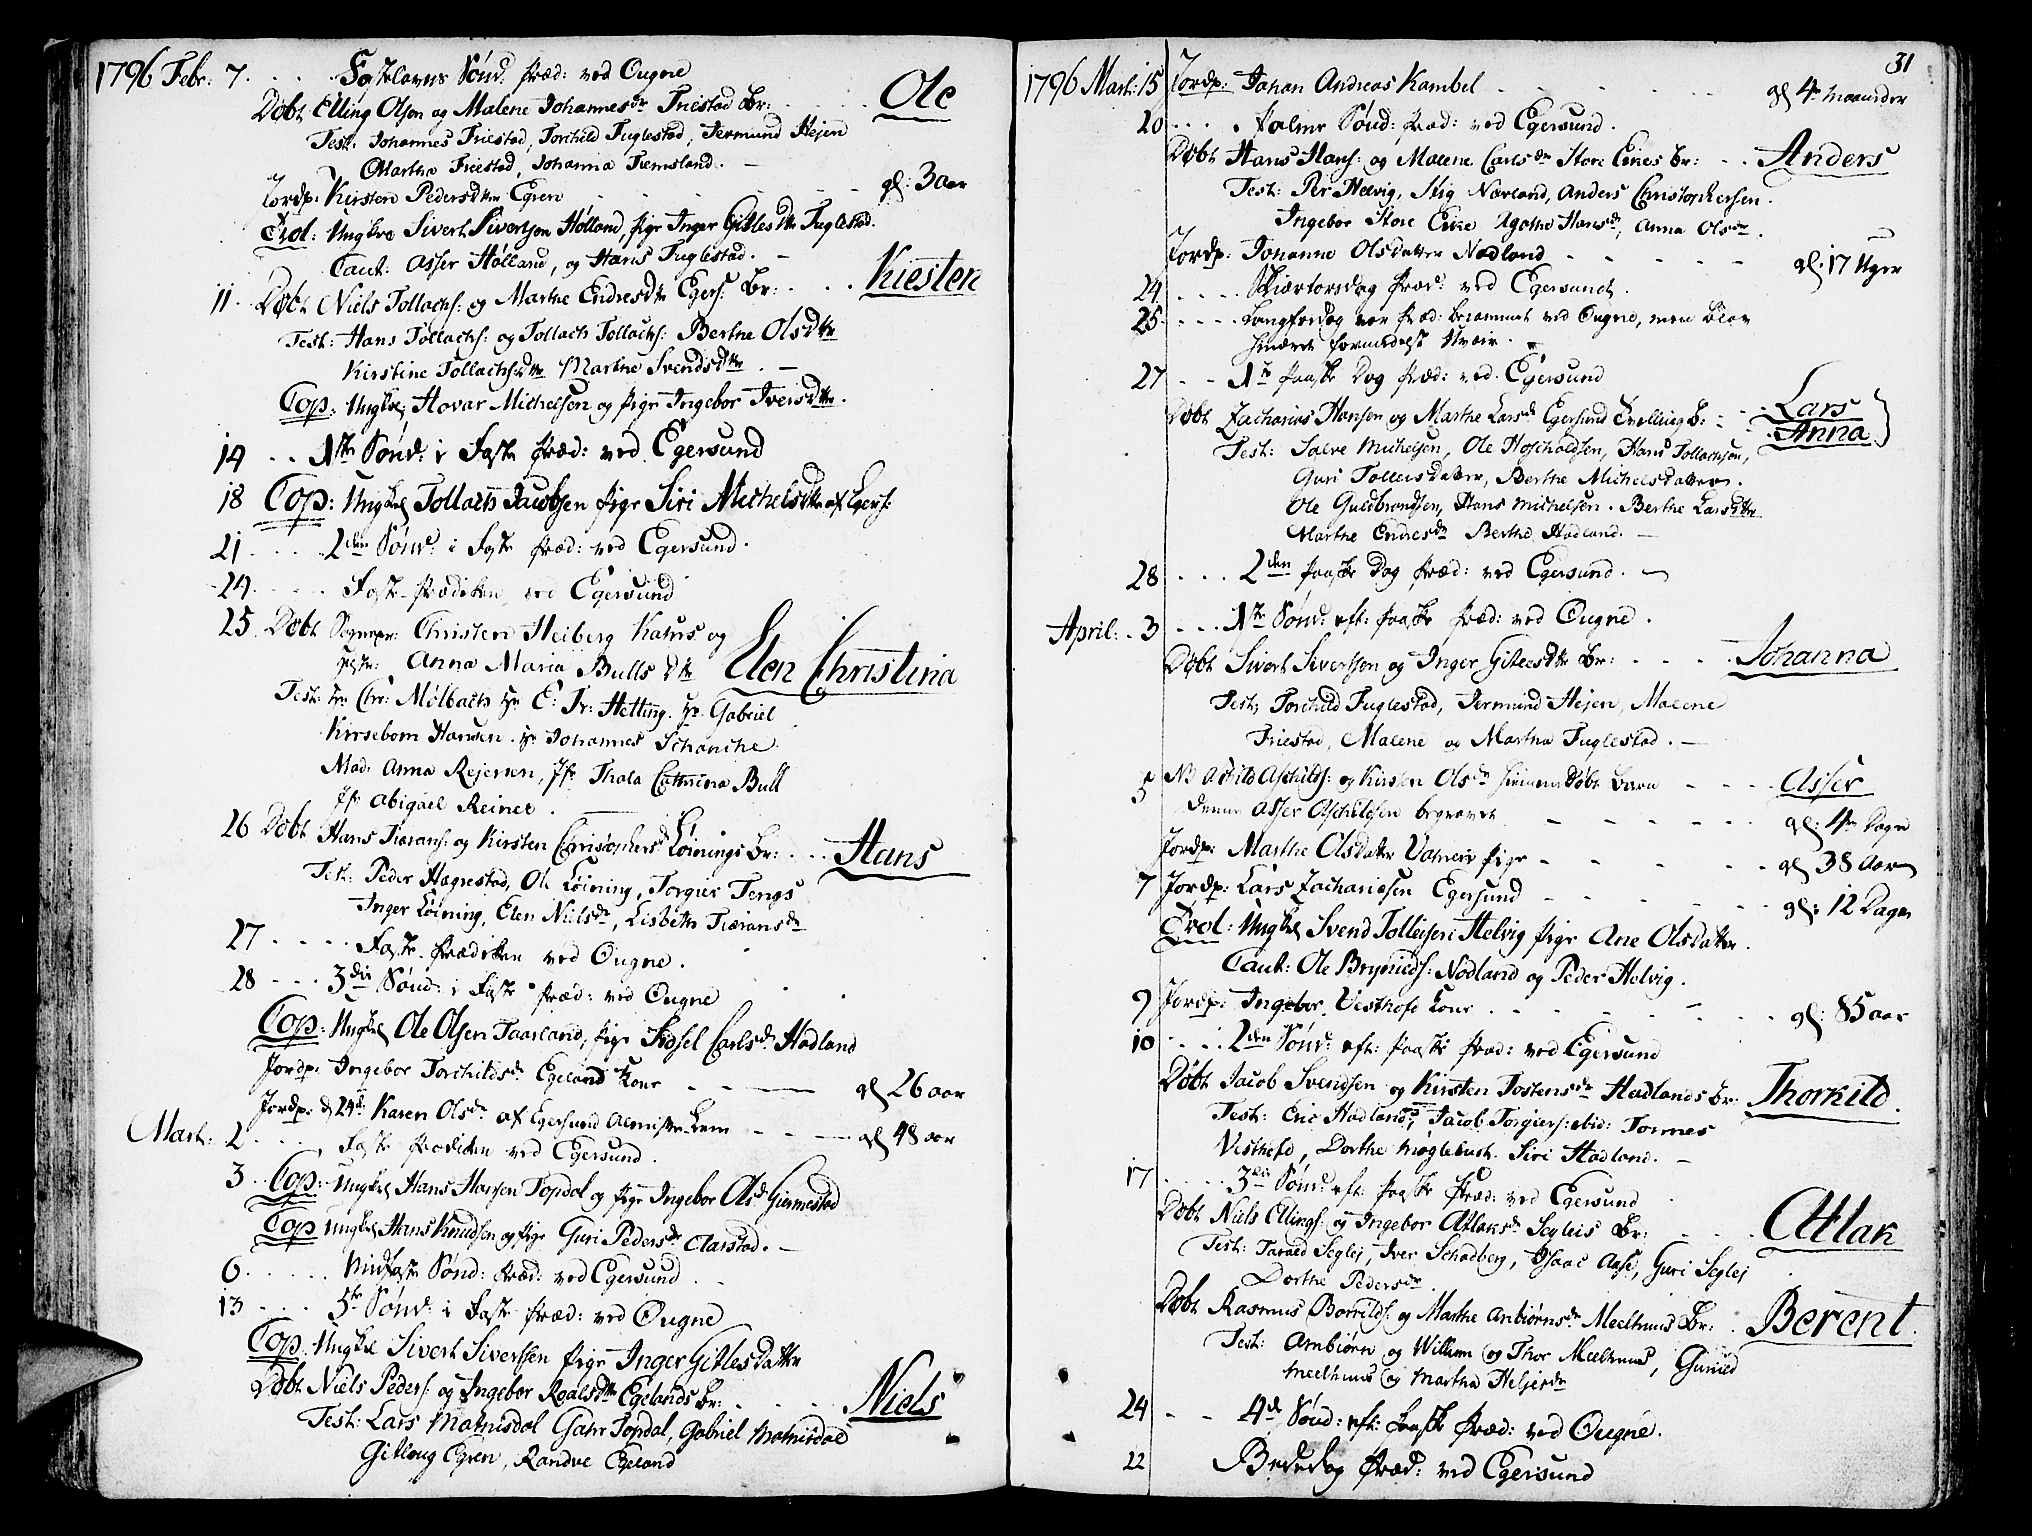 1796 Febr: 7. Fastelavns Sønd: præd: ved Ougne
Døbt Elling Olsøn og Malene Johannesdr Friestad Br: Ole
Test: Johannes Friestad, Torchild Fuglestad, Jermund Hejen
Martha Friestad, Johanna Tiemsland.
Jordp: Kirsten Pedersdtter Egren gl: 3 aar
Trol: Ungkl Sivert Sivertsøn Hølland, pige Inger Gitlesdtter Fuglestad.
Caut: Asser Hølland, og Hans Fuglestad.
11. Døbt Niels Tollachs: og Marthe Endresdtr Egers: Br: Kiesten
Test: Hans Tollachs: og Tollach Tollachs: Berthe Olsdtr
Kirstine Tollachsdtr Marthe Svendsdtr.
Cop: Ungkl Hovar Michelsen og pige Ingebor Iversdtr.
14 1te Sønd: i Faste præd: ved Egersund
18 Cop: Ungkl Tollach Jacobsen pige Siri Michelsdtr af Egers:
21 2den Sønd: i Faste præd: ved Egersund.
24 Faste-Prædiken ved Egersund
25 Døbt Sognepr: Christen Heiberg Kahrs og
Anna Maria Bulls Dtr Elen Christina
Test: Hr Chr: Mølbach Hr E: Fr: Hetting. Hr Gabriel
Kirsebom Hansen. Hr Johannes Schanche
Mad: Anna Rejersen, Jfr Thala Cathrina Bull
Jfr Abigael Reiner.
26 Døbt Hans Tiørans: og Kirsten Christophersdr Løinings Br: Hans
Test: Peder Hægrestad, Ole Løining, Torger Tengs
Inger Løining, Elen Nielsdr, Lisbeth Tiøransdr
27 Faste-Prædiken ved Ougne.
28 3die Sønd: i Faste præd: ved Ougne
Cop: Ungkl Ole Olsen Taarland, pige Sidsel Carlsdr Hadland
Jordp: Ingebor Torchildsdr Egeland kone gl 26 aar
Jordp: d 24d Karen Olsdr af Egersund Almisse-Lem gl 48 aar
Mart: 2 Faste Prædiken ved Egersund.
3 Cop: Ungkl Hans Hansen Topdal og pige Ingebor Olsd Giermestad
Cop Ungkl Hans Knudsen og pige Guri Pedersdr Aarstad.
6 Midfaste Sønd: præd: ved Egersund
13 5te Sønd: i Faste præd: ved Ougne
Cop. Ungkl Sivert Sivertsen pige Inger Gitles Datter
Døbt Niels Peders: og Ingebor Roalsdtr Egelands Br: Niels
Test: Lars Matnisdal Gahr Topdal, Gabriel Matnisdal
Gitloug Egren, Randve Egeland
31
1796 Mart: 15 Jordp: Johan Andreas Kambel gl 4r maaneder
20 Palme Sønd: præd: ved Egersund.
Døbt Hans Hans: og Malene Carlsdr Store Eies Br: Anders
Test: Per Helvig, Stig Nærland, Anders Christophersen.
Ingebor Store Eie Agathe Hansdr, Anna Olsdr.
Jordp: Johanne Olsdatter Nodland gl. 17 Uger
24 Skiærtorsdag præd: ved Egersund.
25 Langfredag var præd: berammet ved Ougne, men blev
hindret formedelst Uveir.
27 1te Paaske Dag præd: ved Egersund
Døbt Zacharias Hansen og Marthe Larsdr Egersund Tvilling B: Lars
Anna
Test: Salve Michelsen, Ole Hoscholdsen, Hans Tollachsen,
Guri Tollersdatter, Berthe Michelsdatter.
Ole Guldbrandsen, Hans Michelsen. Berthe Larsdtr
Marthe Endresdr Berthe Hadland.
28 2den Paaske Dag præd: ved Egersund.
April: 3 1te Sønd: eft: Paaske præd: ved Ougne.
Døbt Sivert Sivertsen og Inger Gitlesdtr Br: Johanna
Test, Torchild Fuglestad, Jermund Hejen, Malene
Friestad, Malene og Martha Fuglestad.
5 NB Aschild Aschilds: og Kirsten Olsdr hiemmedøbt Barn Asser
Denne Asser Aschildsen begravet gl: 4r Dage
Jordp: Marthe Olsdatter Vatneir pige gl 38 aar
7 Jordp: Lars Zachariesen Egersund gl: 12 Dage
Trol: Ungkl Svend Tollisen Helvig pige Ane Olsdatter.
Caut: Ole Brynilds: Nodland og Peder Helvig.
9 Jordp: Ingebor Vesthofe kone gl: 85 aar
10 2den Sønd: eft: Paaske præd: ved Egersund
Døbt Jacob Svendsen og Kirsten Tostensdr Hadlands Br: Thorkild.
Test: Eric Hadland, Jacob Torgiers: ibid: Tormes
Vesthofe, Dorthe Møglebust. Siri Hadland.
17 3die Sønd: eft: Paaske Præd: ved Egersund
Døbt Niels Ellings: og Ingebor Atlaksdr Segleis Br: Atlak
Test: Tarald Seglej, Iver Schadberg, Isaac Aase, Guri Seglej
Dorthe Pedersdr.
Døbt Rasmus Borrilds: og Marthe Anbiørnsdr Meelhuus Br: Berent.
Test: Ambiørn og Willum og Thor Meelhuus, Gunild
Meelhuus og Martha Heljesdr
24 4de Sønd: eft: Paaske Præd: ved Ougne.
22 Bededag præd: ved Egersund